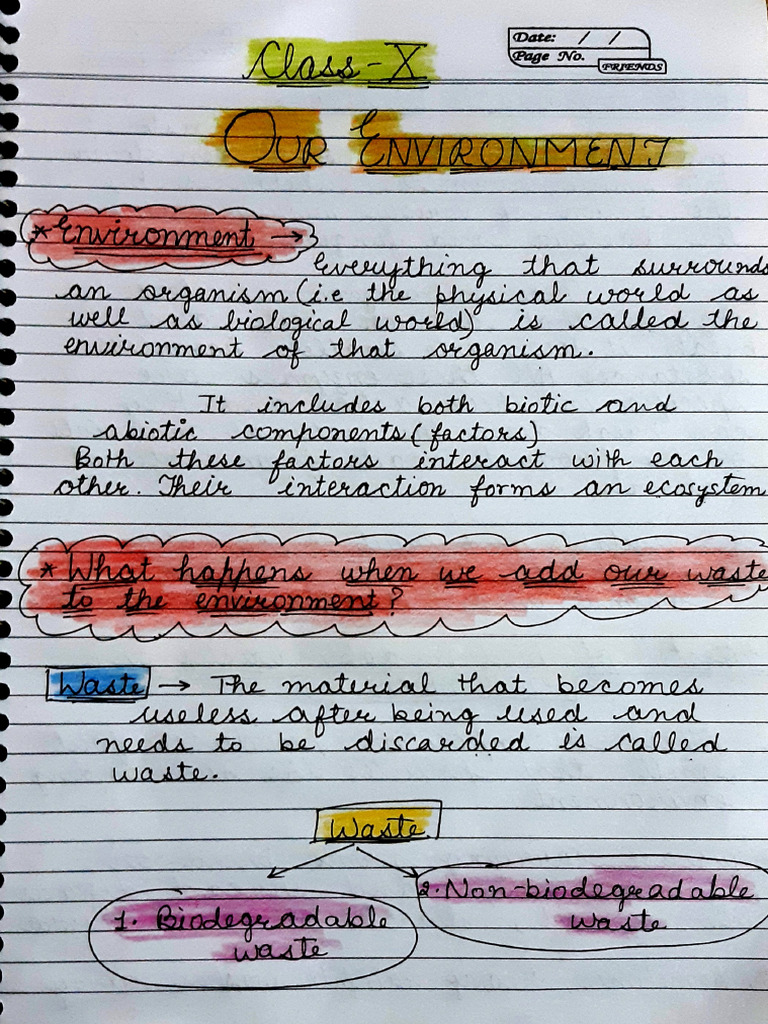 Class-X
Date: / /
Page No.
FRIENDS
OUR ENVIRONMENT
* Environment →
Everything that surrounds
an organism (i.e the physical world as
well as biological world) is called the
environment of that organism.
It includes both biotic and
abiotic components (factors)
Both these factors interact with each
other. Their interaction forms an ecosystem
* What happens when we add our waste
to the environment?
Waste → The material that becomes
useless after being used and
needs to be discarded is called
waste.
Waste
1. Biodegradable
waste
2. Non-biodegradable
waste